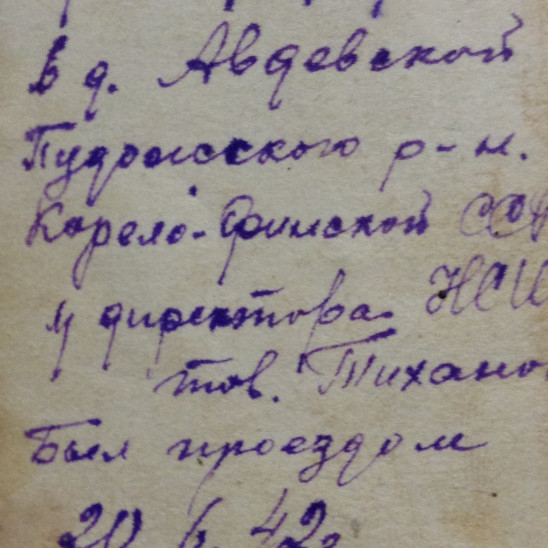 в д. Авдевской
Пудожсского р-н.
Карело-Финской ССР
у директора НСШ
тов. Тихано
Был проездом
20 6. 42г